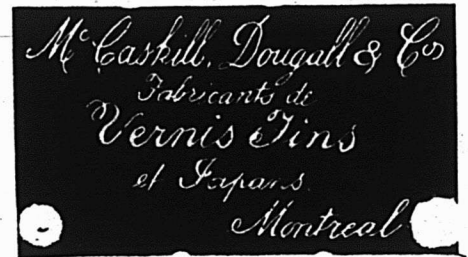 Mc Caskill, Dougall & Cos
Fabricants de
Vernis Fins
et Japans
Montreal